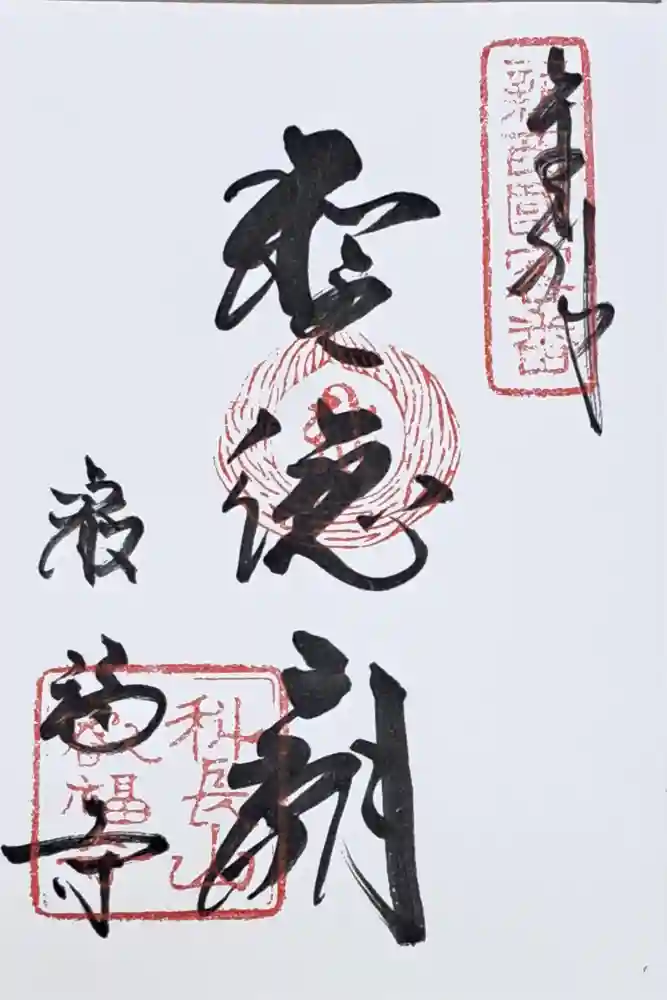 奉拝
聖徳廟
叡福寺
科長山
叡福寺